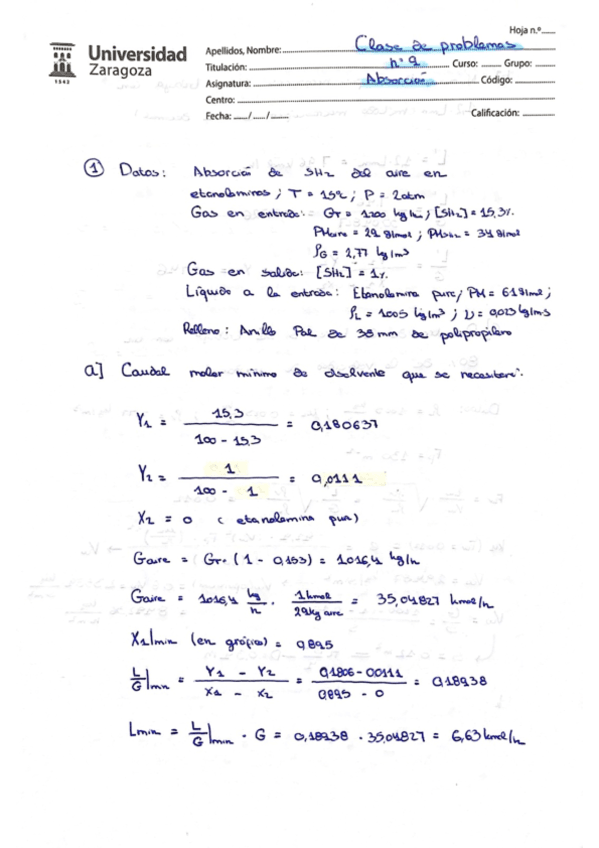 Hoja n.º
Universidad
Zaragoza
1542
Apellidos, Nombre: Clase de problemas
Titulación: nº 2 Curso: Grupo:
Asignatura: Absorción Código:
Centro:
Fecha: / / Calificación:
① Datos: Absorción de SH2 del aire en
etanolaminas ; T = 15ºC ; P = 2atm
Gas en entrada: GT = 1200 kg/h ; [SH2] = 15,3%
PMaire = 29 g/mol ; PMSH2 = 34 g/mol
ρG = 2,77 kg/m³
Gas en salida: [SH2] = 1%
Líquido a la entrada: Etanolamina pura / PM = 61 g/mol ;
ρL = 1005 kg/m³ ; υ = 0,023 kg/ms
Relleno: Anillo Pal de 38 mm de polipropileno
a] Caudal molar mínimo de disolvente que se necesitaré:
Y1 = 15,3 / 100 - 15,3 = 0,180637
Y2 = 1 / 100 - 1 = 0,0111
X2 = 0 (etanolamina pura)
Gaire = GT · (1 - 0,153) = 1016,4 kg/h
Gaire = 1016,4 kg/h · 1 kmol / 29 kg aire = 35,04827 kmol/h
X1|min (en gráfica) = 0,895
L/G|min = Y1 - Y2 / X1 - X2 = 0,1806 - 0,0111 / 0,895 - 0 = 0,18938
Lmin = L/G|min · G = 0,18938 · 35,04827 = 6,63 kmol/h